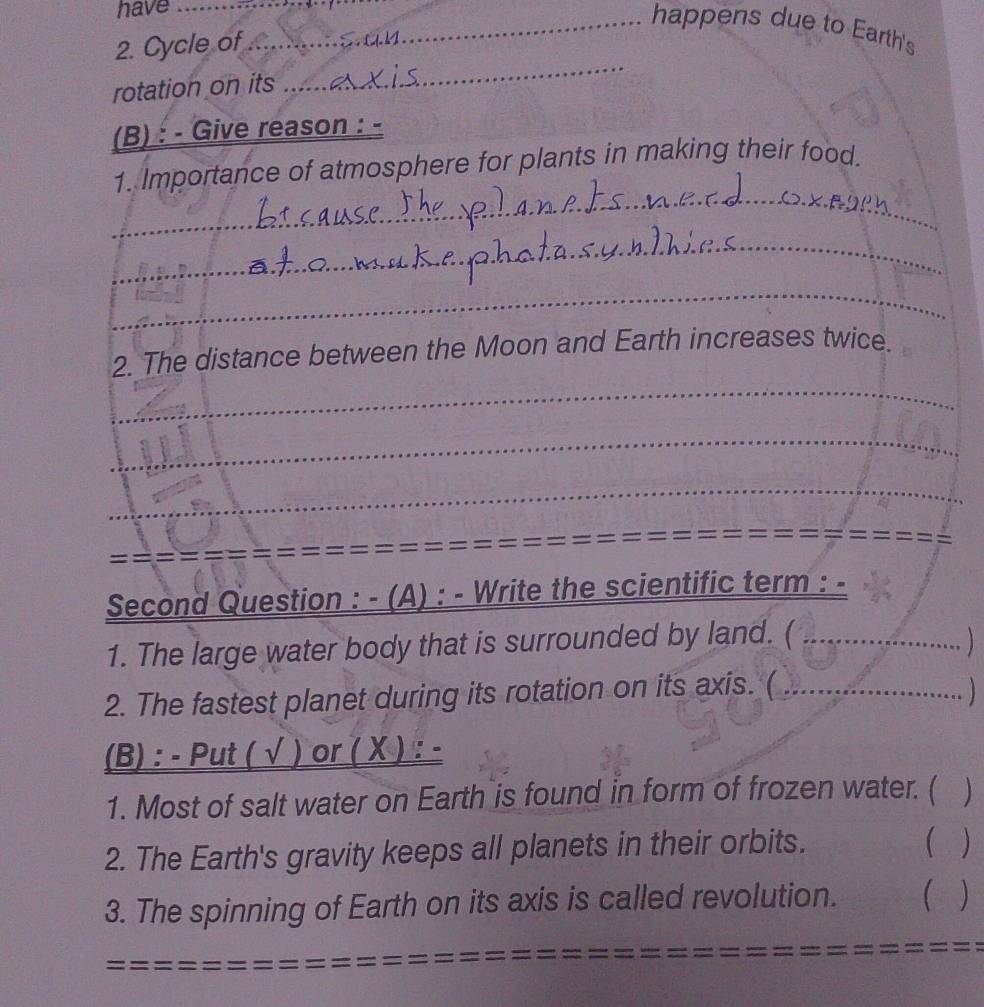 have ....................
2. Cycle of ............sun.......................... happens due to Earth's
rotation on its ......axis..........................
(B) : - Give reason : -
1. Importance of atmosphere for plants in making their food.
because the planets need oxegen
to make photosynthies
2. The distance between the Moon and Earth increases twice.
Second Question : - (A) : - Write the scientific term : -
1. The large water body that is surrounded by land. (....................)
2. The fastest planet during its rotation on its axis. (....................)
(B) : - Put ( √ ) or ( X ) : -
1. Most of salt water on Earth is found in form of frozen water. (   )
2. The Earth's gravity keeps all planets in their orbits. (   )
3. The spinning of Earth on its axis is called revolution. (   )